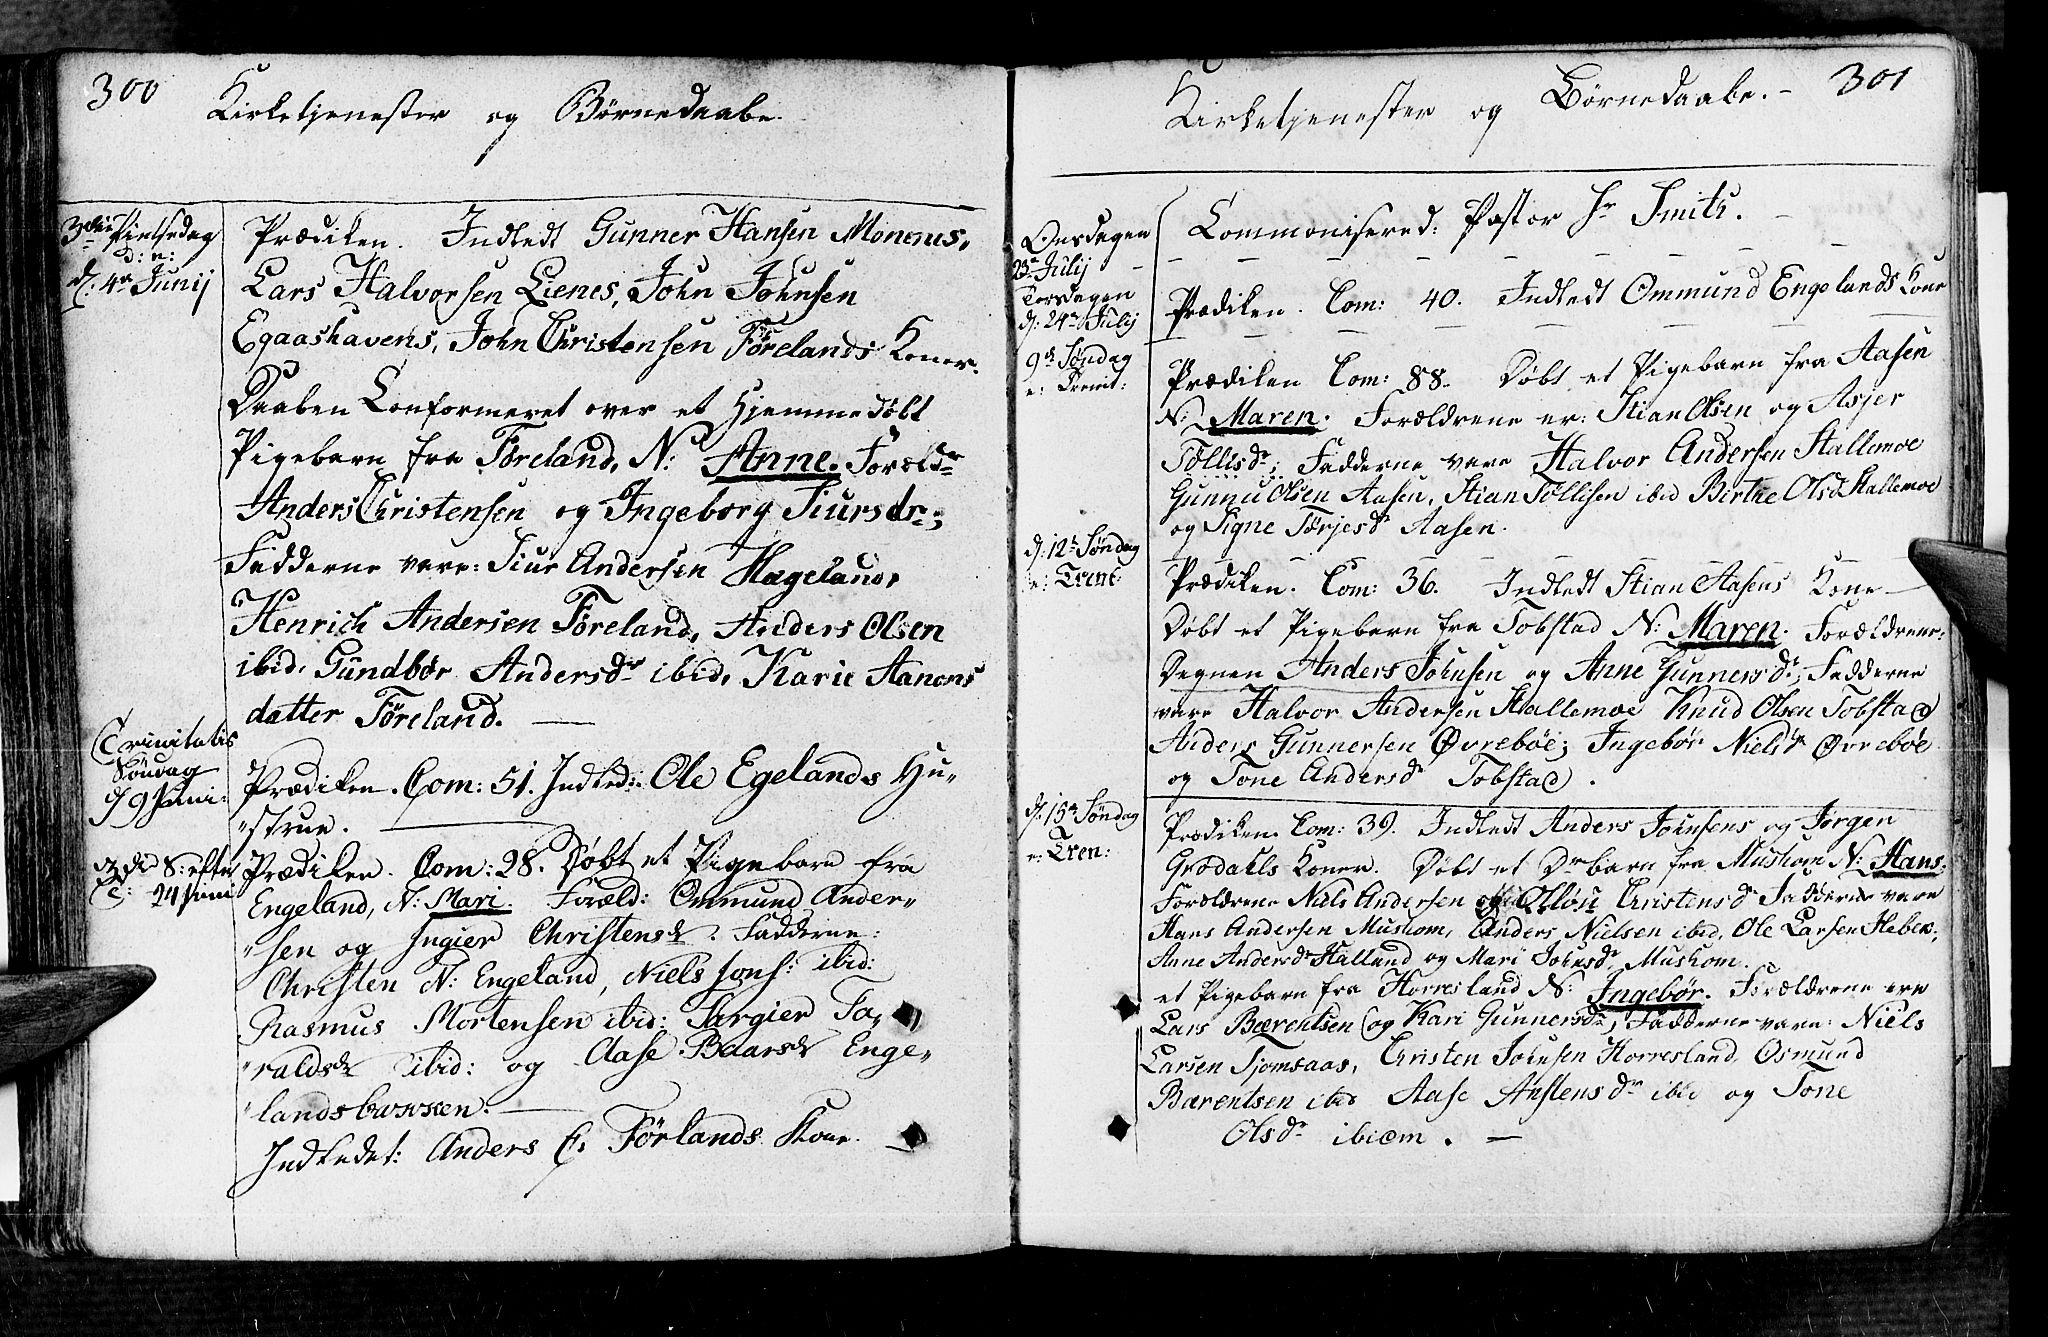 300
Kirketjenester og Børnedaabe.
3die Pintsedag
d: e:
d: 4de Junij
Prædiken. Indledt Gunner Hansen Monens,
Lars Halvorsen Lienes, John Johnsen
Egaashavens, John Christensen Förelands Koner.
Daaben Conformeret over et Hjemmedöbt
Pigebarn fra Föreland, N: Anne. Foræld:
Anders Christensen og Ingeborg Siursdr;
Fadderne vare: Siur Andersen Hægeland,
Henrich Andersen Föreland, Anders Olsen
ibid, Gundbör Andersdr ibid, Karie Aanons
datter Föreland.
Trinitatis
Söndag
d 9 Juni:
Prædiken. Com: 51. Indled: Ole Egelands Hu-
"strue.
3die S: efter
T: 24 Juni
Prædiken. Com: 28. Döbt et Pigebarn fra
Engeland, N: Mari. Foræld: Ommund Ander-
"sen og Ingier Christensdr. Fadderne:
Christen N: Engeland, Niels Jons: ibid:
Rasmus Mortensen ibid: Sargier To-
"raldsdr ibid: og Aase Baarsdr Enge-
"landsbarsen.
Indledet: Anders C: Förlands Kone.
301
Kirketjenester og Börnedaabe.
Onsdagen
23de Julij
Commonisered: Pastor Hr Smith.
Torsdagen
d: 24de Julij
Prædiken. Com: 40. Indledt Ommund Engelands Kone
9de Söndag
e: Trenit:
Prædiken Com: 88. Döbt et Pigebarn fra Aasen
N: Maren. Forældrene er: Stian Olsen og Asjer
Töllisdr; Fadderne vare Halvor Andersen Stallemoe
Gunnu Olsen Aasen, Stian Töllisen ibid Birthe Olsd Stallemoe
og Signe Törjesdr Aasen.
d: 12te Söndag
e: Trent:
Prædiken. Com: 36. Indledt Stian Aasens Kone
Döbt et Pigebarn fra Tobstad N: Maren. Forældrene:
Degnen Anders Johnsen og Anne Gunnersdr; Fadderne
vare Halvor Andersen Stallemoe Knud Olsen Tobstad
Anders Gunnersen Övreböe; Ingebör Nielsdr Övreböe
og Tone Andersdr Tobstad.
d: 15de Söndag
e: Tren:
Prædiken Com: 39. Indledt Anders Johnsens og Jörgen
Grodahls Koner. Döbt et Drbarn fra Mushom N: Hans:
Forældrene Niels Andersen og Christensdr Fadderne vare
Hans Andersen Mushom, Anders Nielsen ibid, Ole Larsen Heben;
Anne Andersdr Halland og Mari Johnsdr Mushom.
et Pigebarn fra Horresland N: Ingebör. Forældrene ere
Lars Bærentsen og Kari Gunnersdr; Fadderne vare: Niels
Larsen Tjomsaas, Christen Johnsen Horresland, Osmund
Bærentsen ibid Aase Anstensdr ibid og Tone
Olsdr ibidem.